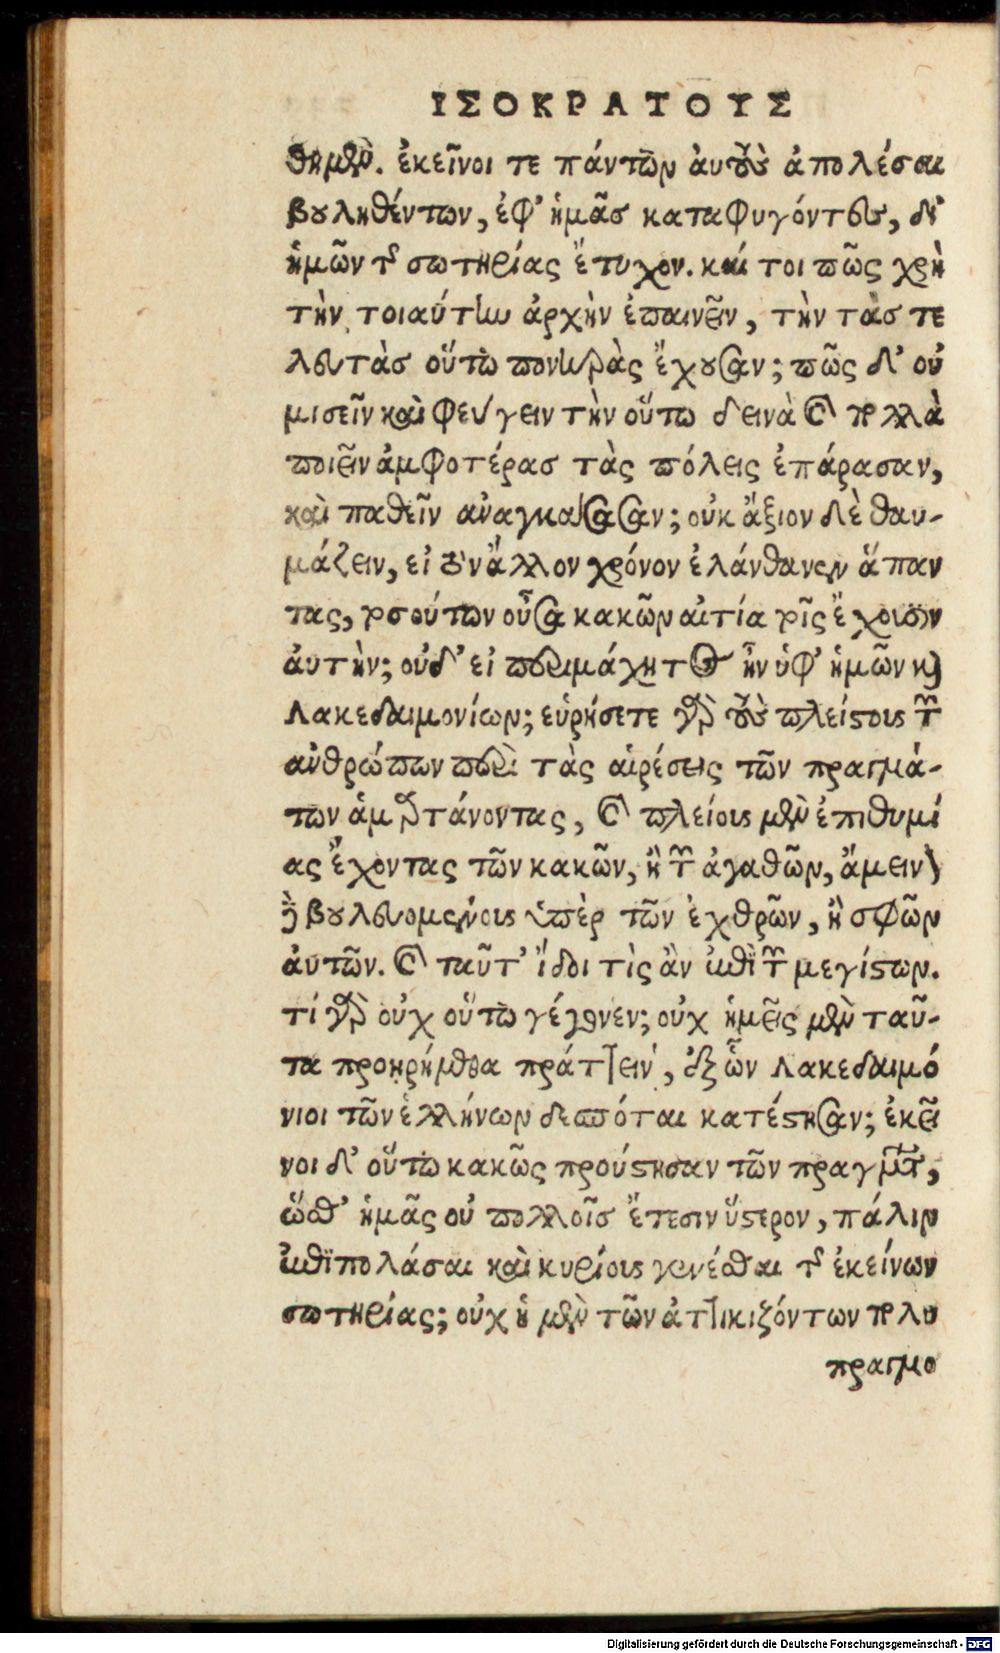 ΙΣΟΚΡΑΤΟΥΣ
θημεν. ἐκεῖνοι τε πάντων ἀυτοὺς ἀπολέσαι
βουληθέντων, ἐφ' ἡμᾶσ καταφυγόντες, δι'
ἡμῶν τῆς σωτηρίας ἔτυχον. καί τοι πῶς χρὴ
τὴν τοιαύτην ἀρχὴν ἐπαινεῖν, τὴν τὰσ τε
λευτὰσ οὕτω πονηρὰς ἔχουσαν; πῶς δ' οὐ
μισεῖν καὶ φεύγειν τὴν οὕτω δεινὰ καὶ πολλὰ
ποιεῖν ἀμφοτέρασ τὰς πόλεις ἐπάρασαν,
καὶ παθεῖν αναγκάσασαν; οὐκ ἄξιον δὲ θαυ-
μάζειν, εἰ τὸν ἄλλον χρόνον ἐλάνθανεν ἅπαν
τας, τοσούτων οὖσα κακῶν αιτία τοῖς ἔχουσιν
ἀυτὴν; οὐδ' εἰ περιμάχητος ἦν ὑφ' ἡμῶν καὶ
Λακεδαιμονίων; εὑρήσετε γὰρ τοὺς πλείστους τῶν
ανθρώπων περὶ τὰς αἱρέσεις τῶν πραγμά-
των ἁμαρτάνοντας, καὶ πλείους μὲν ἐπιθυμί
ας ἔχοντας τῶν κακῶν, ἢ τῶν ἀγαθῶν, ἄμεινον
δὲ βουλευομένους ὑπὲρ τῶν ἐχθρῶν, ἢ σφῶν
ἀυτῶν. καὶ ταῦτ' ἴδοι τὶς ἂν ἐπὶ τῶν μεγίστων.
τί γὰρ οὐχ οὕτω γέγονεν; οὐχ ἡμεῖς μὲν ταῦ-
τα προῃρήμεθα πράττειν, ἐξ ὧν Λακεδαιμό
νιοι τῶν ἑλλήνων δεσπόται κατέστησαν; ἐκεῖ
νοι δ' οὕτω κακῶς προύστησαν τῶν πραγμάτων,
ὥσθ' ἡμᾶς οὐ πολλοῖσ ἔτεσιν ὕστερον, πάλιν
ἐπιπολάσαι καὶ κυρίους γενέσθαι τῆς ἐκείνων
σωτηρίας; οὐχ ἡ μὲν τῶν ἀττικιζόντων πολυ
πραγμο
Digitalisierung gefördert durch die Deutsche Forschungsgemeinschaft - DFG